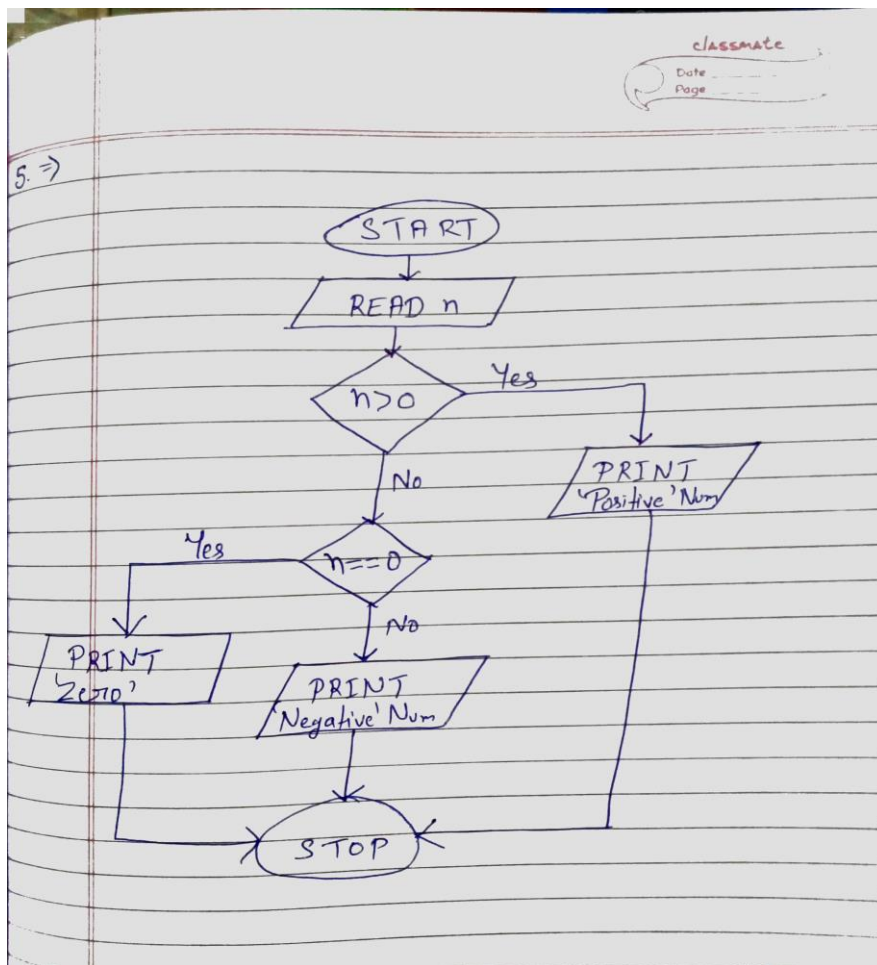 classmate
Date
Page
5. =>
START
READ n
n>0
Yes
No
PRINT
'Positive' Num
n==0
Yes
No
PRINT
'Zero'
PRINT
'Negative' Num
STOP